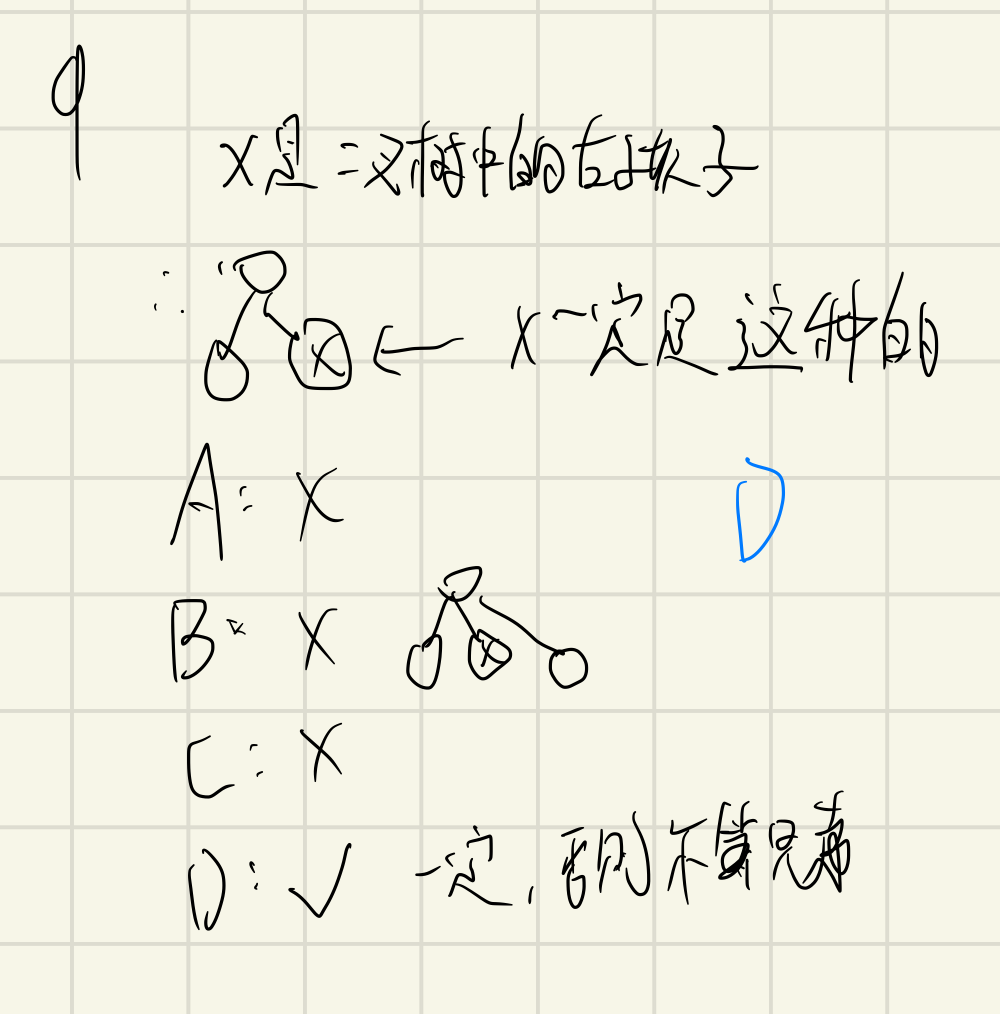 9
X是二叉树中的右孩子
∴ X ← X一定是这种的
A: X
D
B: X X
C: X
D: ✓ 一定,否则不算兄弟